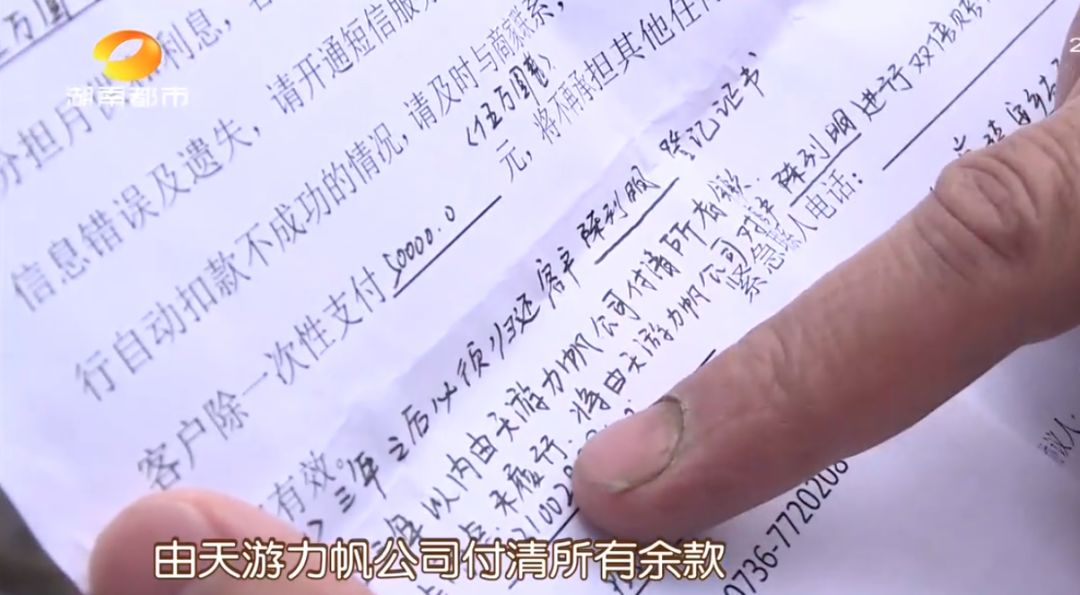 湖南都市
万圆
分担月供和利息,
信息错误及遗失,请开通短信服务
行自动扣款不成功的情况,请及时与商家联系,
(伍万圆整)
客户除一次性支付50000.0元,将不再承担其他任何
有效。
三年之后必须归还客户陈列明登记证书
年以内由天游力帆公司付清所有余款.
未履行.将由天游力帆公司对客户陈列明进行双倍赔
紧急联人电话:
0736-7720208
议人:
由天游力帆公司付清所有余款